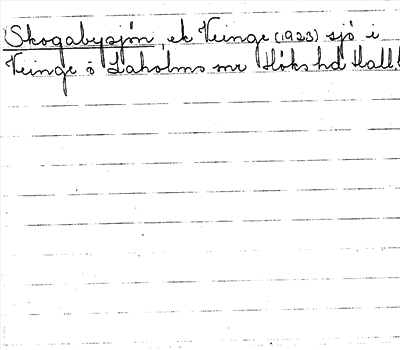 Skogabysjön, ek Veinge (1923) sjö i
Veinge o Laholms snr Höks hd Hall